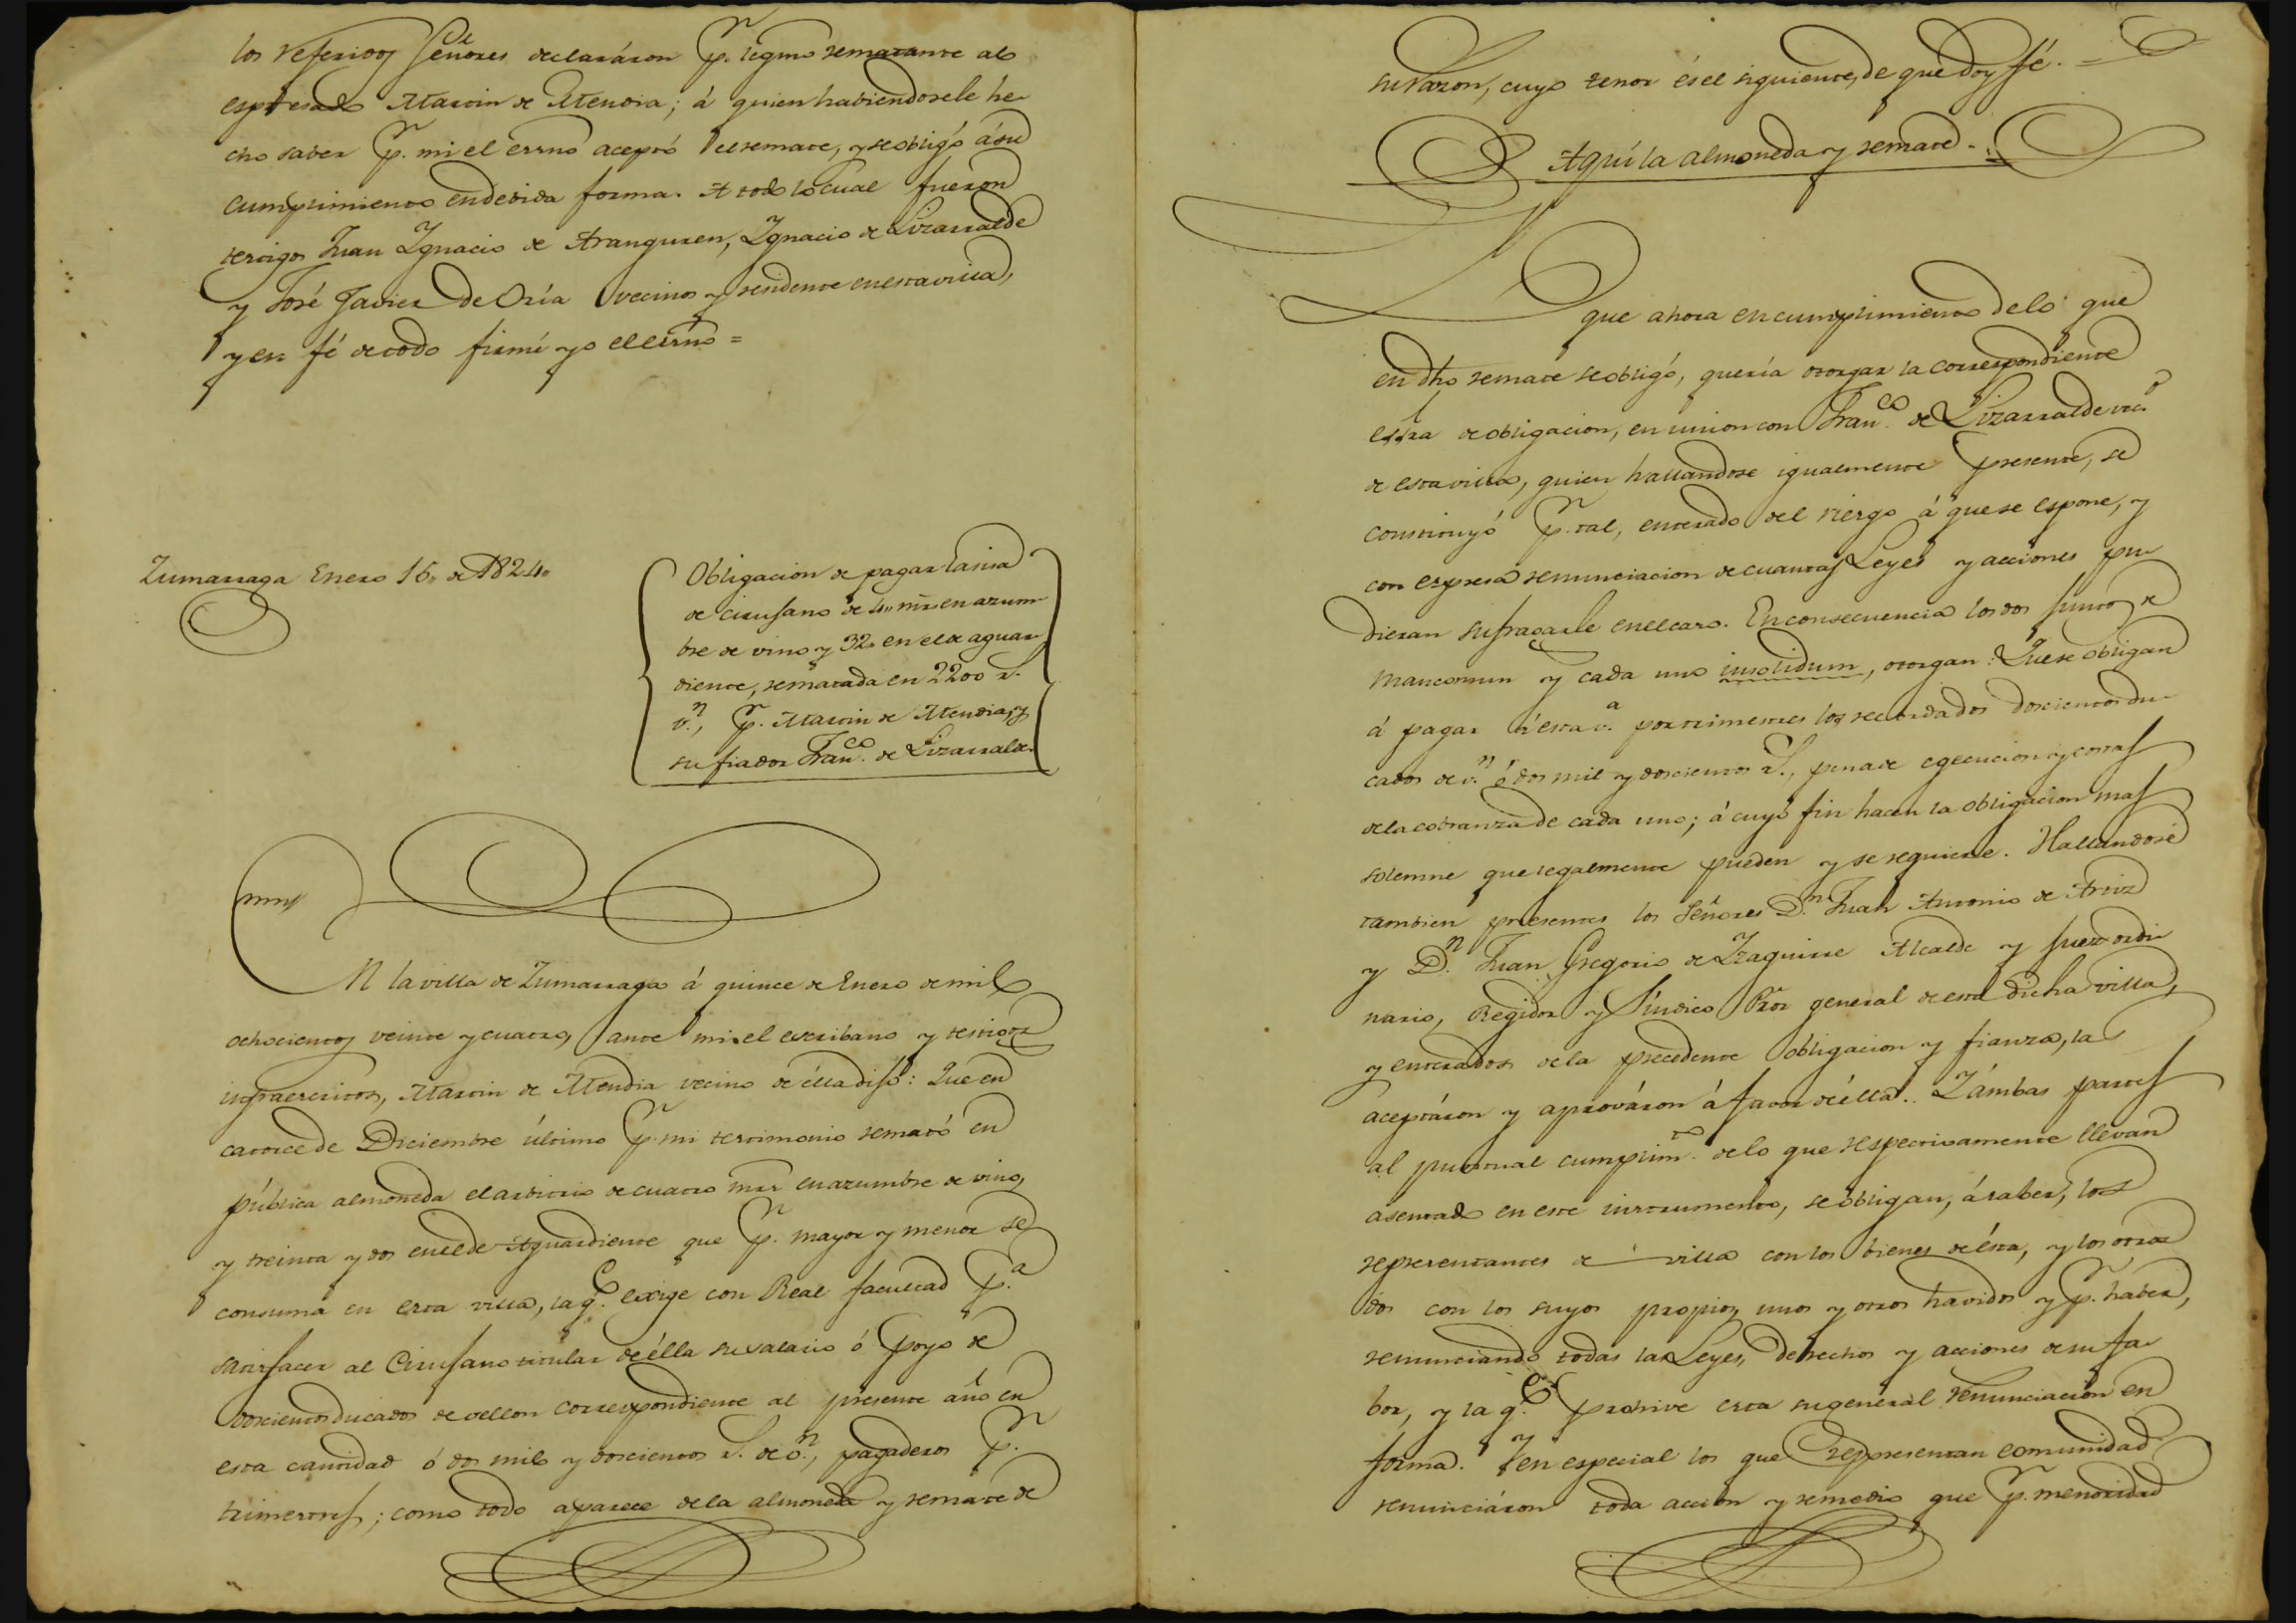 los referidos Señores declaráron pr. legmo rematante al
espresado Martin de Mendia; á quien habiendosele he-
cho saber pr. mi el essno aceptó el remate, y se obligó á su
cumplimiento en devida forma. A todo lo cual fueron
testigos Juan Ygnacio de Aranguren, Ygnacio de Lizarralde
y José Javier de Oria vecinos y residente en esta villa,
y en fé de todo firmé yo el essno =
Zumarraga Enero 15,, de 1824,,
Obligacion de pagar la sisa
de cirujano de 4,, mrs. en azum-
bre de vino y 32,, en el de aguar-
diente, rematada en 2200 rs.
vn., pr. Martin de Mendia, y
su fiador Franco. de Lizarralde.
N la villa de Zumarraga á quince de Enero de mil
ochocientos veinte y cuatro, ante mi el escribano y testigos
infraescritos, Martin de Mendia vecino de élla dijo: Que en
catorce de Diciembre último pr. mi testimonio remató en
pública almoneda el arbitrio de cuatro mrs. en azumbre de vino,
y treinta y dos en el de Aguardiente que pr. mayor y menor se
consuma en esta villa, la qe. exige con Real facultad pa.
satisfacer al Cirujano titular de élla su salario ó poyo de
doscientos ducados de vellon correspondiente al presente año en
esta cantidad ó dos mil y doscientos rs. de vn., pagaderos pr.
trimestres; como todo aparece de la almoneda y remate de
su razon, cuyo tenor és el siguiente, de que doy fé. =
Aquí la almoneda y remate.
que ahora en cumplimiento de lo que
en dho remate se obligó, quería otorgar la correspondiente
essra de obligacion, en union con Franco. de Lizarralde veco.
de esta villa, quien hallandose igualmente presente, se
constituyó pr. tal, enterado del riesgo á que se espone, y
con espresa renunciacion de cuantas Leyes y acciones pu-
dieran sufragarle en el caso. En consecuencia los dos juntos de
mancomun y cada uno insolidum, otorgan: Que se obligan
á pagar á esta va. por trimestres los recordados doscientos du-
cados de vn. ó dos mil y doscientos rs., pena de egecucion y costas
de la cobranza de cada uno; á cuyo fin hacen la obligacion mas
solemne que legalmente pueden y se requiere. Hallandose
tambien presentes los Señores Dn. Juan Antonio de Artiz
y Dn. Juan Gregorio de Yzaguirre Alcalde y juez ordi-
nario, Regidor y Síndico Pror general de esta dicha villa,
y enterados de la precedente obligacion y fianza, la
aceptáron y aprováron á favor de élla. Y ámbas partes
al puntual cumplimto. de lo que respectivamente llevan
asentado en este instrumento, se obligan, á saber, los
representantes de villa con los bienes de ésta, y los otros
dos con los suyos propios, unos y otros havidos y pr. haber,
renunciando todas las Leyes, derechos y acciones de su fa-
bor, y la qe. prohive esta su general renunciacion en
forma. Y en especial los que representan comunidad
renunciáron toda accion y remedio que pr. menoridad